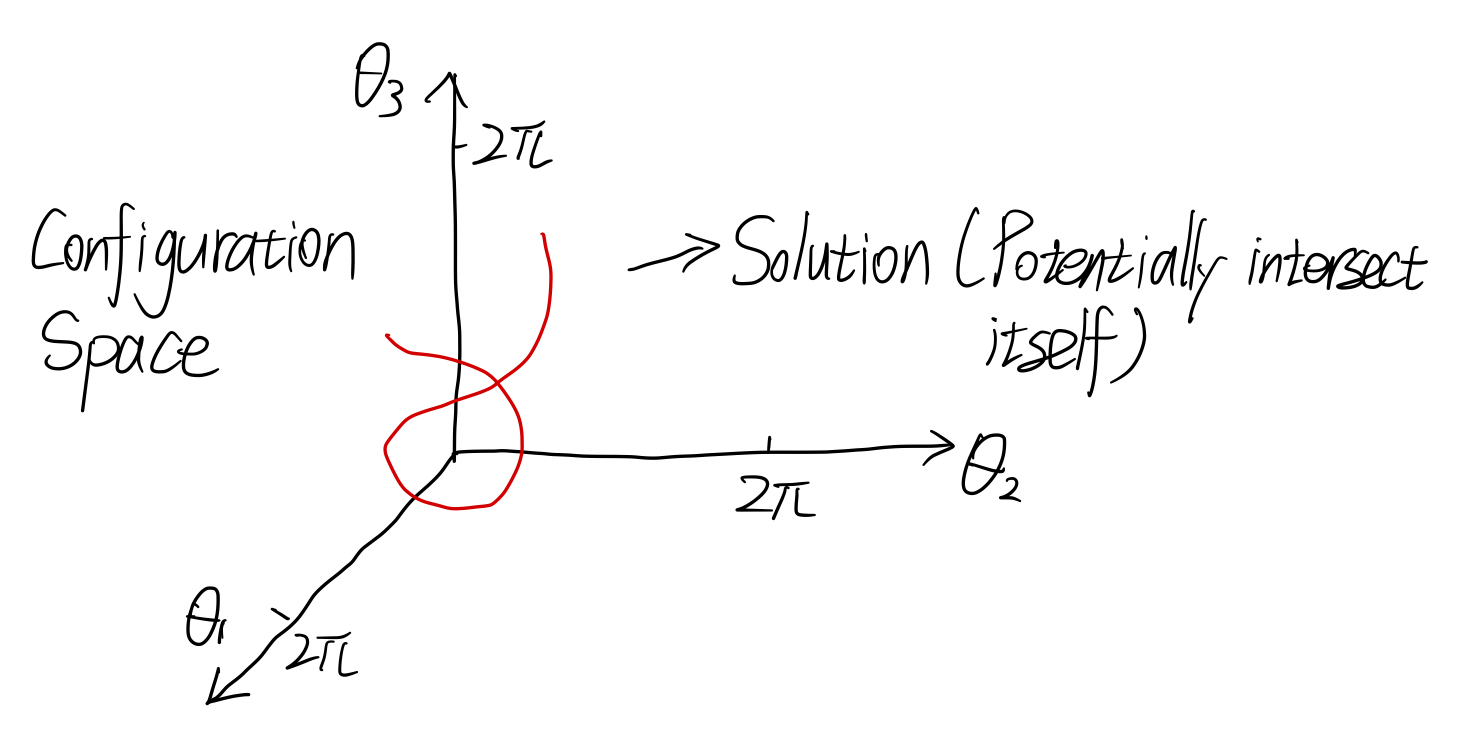 θ₃
2π
Configuration
Space
→ Solution (Potentially intersect
itself)
θ₂
2π
θ₁
2π